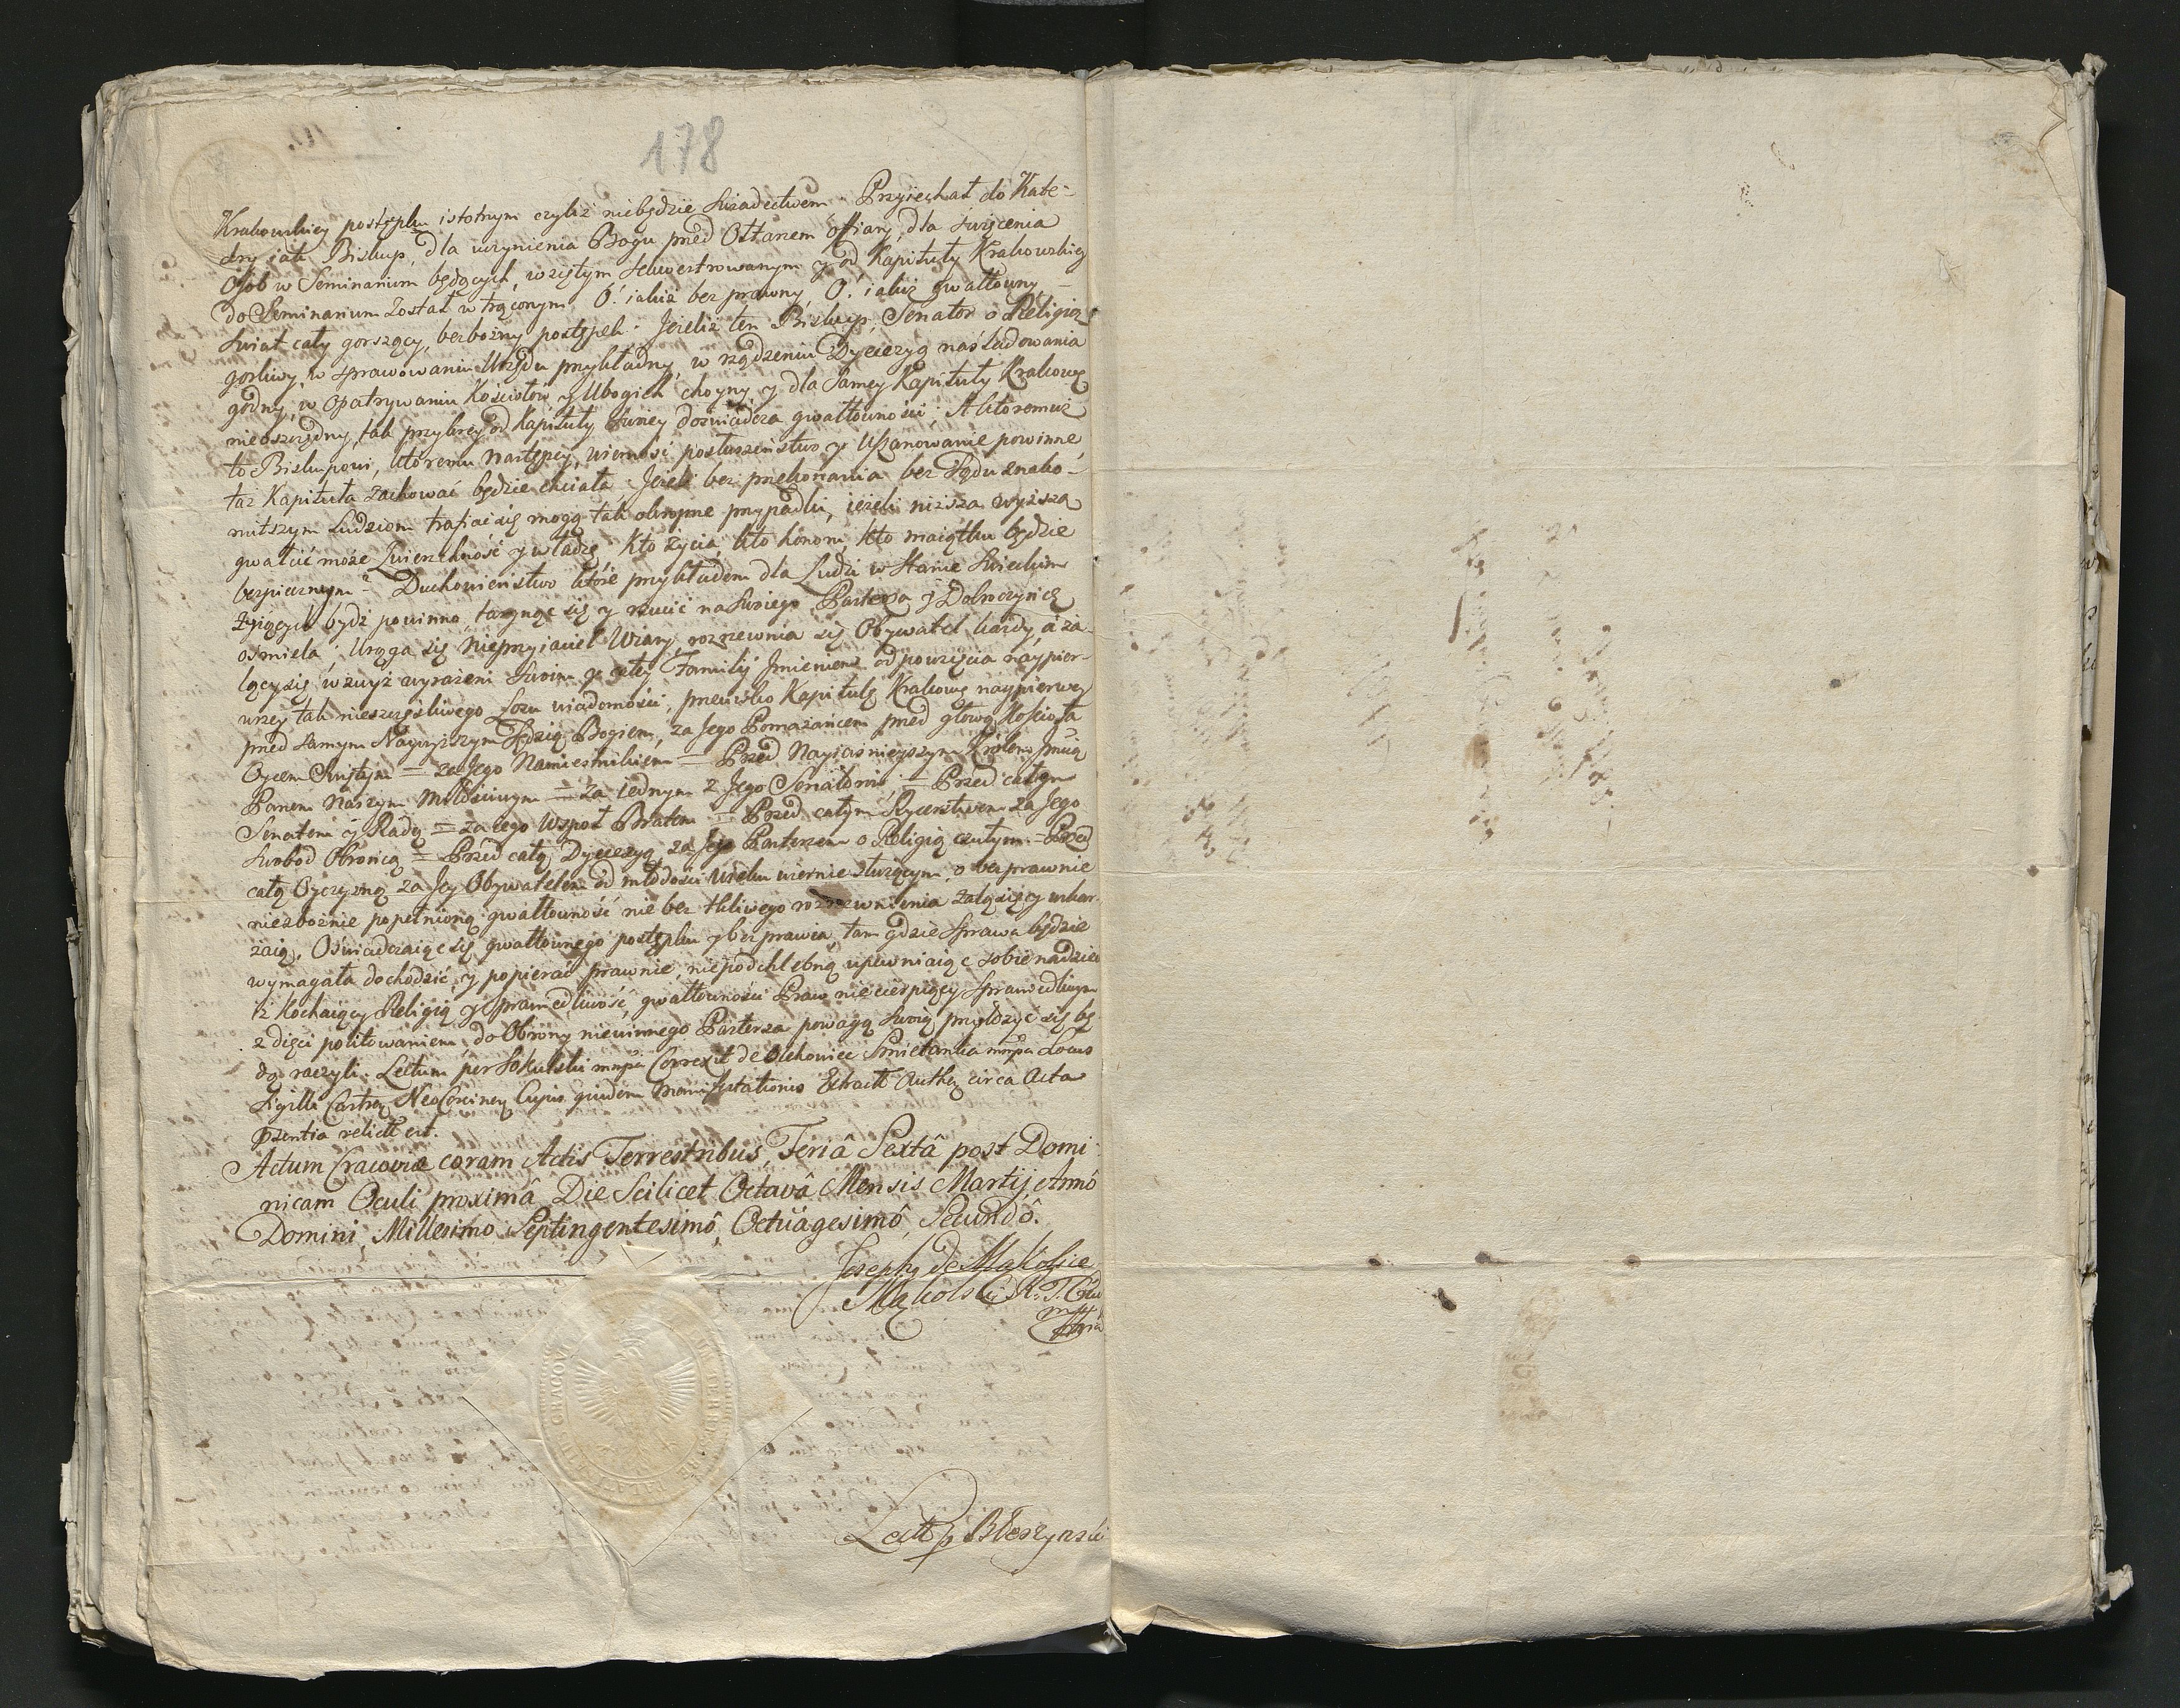 178
Krakowskiey postępku istotnym czyliż niebędzie Swiadectwem Przyiechał do Kate-
dry iak Biskup, dla uczynienia Bogu przed Ołtarzem offiary, dla święcenia
Osób w Seminarium będących, wziętym sekwestrowanym y od Kapituły Krakowskiey
do Seminarium został wtrąconym. O! iakiż bez prawny, O! iakiż gwałtowny,
Swiat cały gorszący, bezbożny postępek. Jeżeliż ten Biskup, Senator o Religią
gorliwy, w sprawowaniu Urzędu przykładny, w rządzeniu Dyecezyą naśladowania
godny, w opatrywaniu Kościołow y Ubogich choyny, y dla Samey Kapituły Krakows
nieoszczędny, tak przykrey od Kapituły Swey doświadcza gwałtowności; A któremuż
to Biskupowi, któremu Następcy, wierność posłuszeństwo y Uszanowanie powinne,
taż Kapituła zachować będzie chciała, Jeżeli bez przekonania bez Sądu znako-
mitszym Ludziom trafiać się mogą tak okropne przypadki, ieżeli niższa wyższą
gwałcić może Zwierzchność y władzę. Kto życia, kto honoru, kto maiątku będzie
bezpiecznym? Duchowieństwo które przykładem dla Ludzi w Stanie Swieckim
żyiących bydź powinno, targnąć się y rzucić na Swoiego Pasterza y Dobroczyńcę
ośmiela; Urąga się Nieprzyiaciel Wiary, rozrzewnia się Obywatel każdy, a ża-
lący się wzwyż wyrażeni Swoim y całey Familij Jmieniem od powzięcia naypier-
wszey tak nieszczęśliwego Losu wiadomości, przeciwko Kapitule Krakows naypierwey
przed Samym Naywyższym Sędzią Bogiem, za Jego Pomazańcem przed głową Kościoła
Oycem Swiętym = za Jego Namiestnikiem = Przed Nayiaśnieyszym Królem Jmcią
Panem Naszym Miłościwym = za iednym z Jego Senatorow = Przed całym
Senatem y Radą = za iego Wspoł Bratem = Przed całym Rycerstwem za Jego
Swobod Obrońcą = Przed całą Dyecezyą za Jego Pasterzem o Religią czułym = Przed
całą Oyczyzną za Jey Obywatelem od młodości wieku wiernie służącym, o bezprawnie
niezbożnie popełnioną gwałtowność nie bez tkliwego rozrzewnienia żalą się y uskar-
żaią, Oświadczaiąc się gwałtownego postępku y bezprawia, tam gdzie Sprawa będzie
wymagała dochodzić, y popierać prawnie, niepodchlebną upewniaiąc sobie nadzieię
iż Kochaiący Religią y Sprawiedliwość, gwałtowności Praw nie cierpiący Sprawiedliwym
zdięci politowaniem, do Obrony niewinnego Pasterza powagą Swoią przyłożyć się bę
dą raczyli. Lectum per Sokulski mppa Correxit de Olchowiec Smietanka mppa Locus
Sigilli Castren NeoCorcinen Cujus quidem Manifestationis Extractt Authen circa Acta
Pzentia relictt est.
Actum Cracoviæ coram Actis Terrestribus, Feriâ Sextâ post Domi-
nicam Oculi proximâ Die Scilicet Octavâ Mensis Martij Annô
Domini, Millesimo Septingentesimô, Octuagesimô, Secundô.
Joseph9 de Mąkolice
Mąkolski
Lectt p Błeszynski